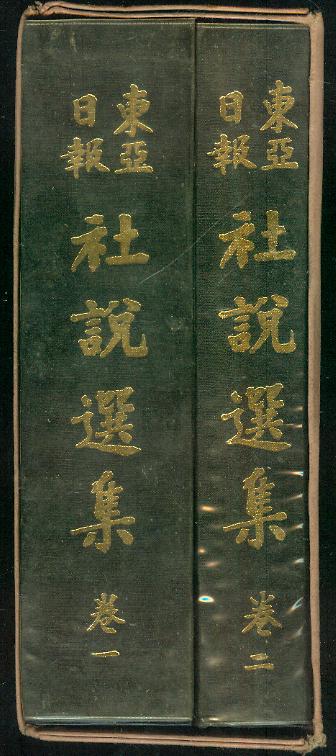 東亞
日報
社說選集
卷一
東亞
日報
社說選集
卷二